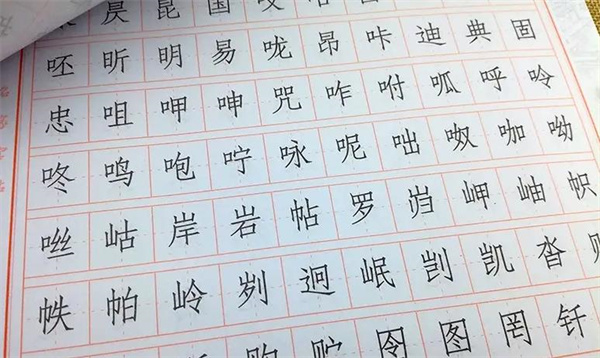 昆 国
呸 昕 明 易 咙 昂 咔 迪 典 固
忠 咀 呷 呻 咒 咋 咐 呱 呼 呤
咚 鸣 咆 咛 咏 呢 咄 呶 咖 呦
咝 岵 岸 岩 帖 罗 岿 岬 岫 帜
帙 帕 岭 刿 迥 岷 剀 凯 沓
购 贮 囹 图 罔 钎